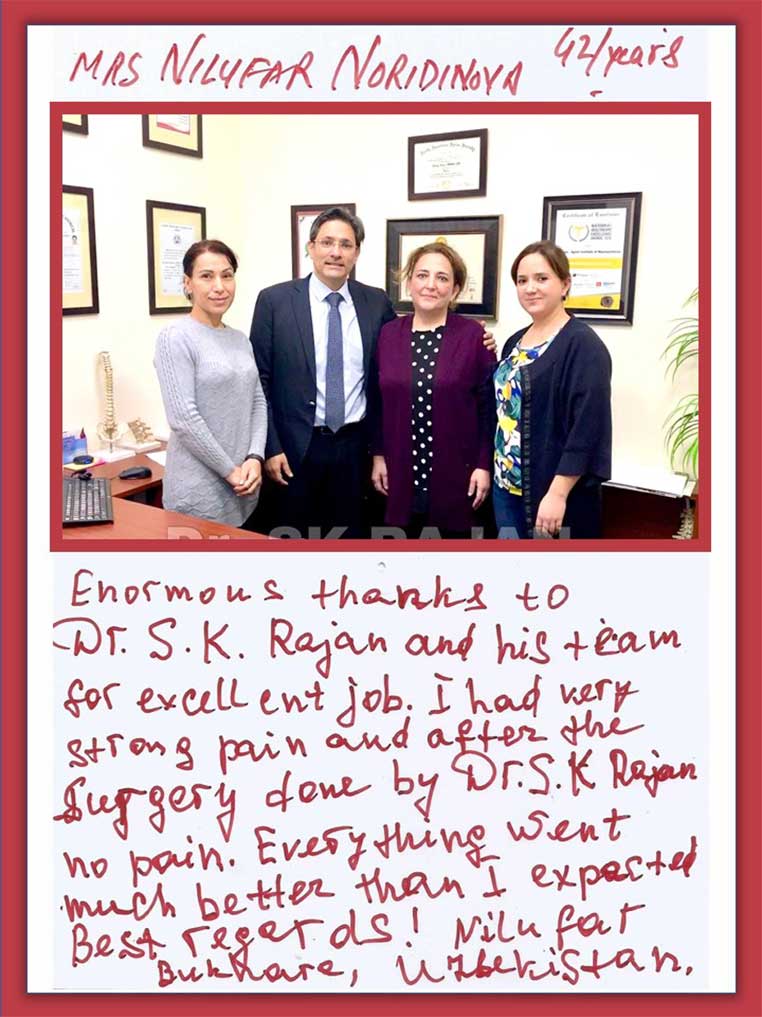 MRS NILUFAR NORIDINOVA 42/years
Certificate of Excellence
Dr. SK RAJAN
Enormous thanks to
Dr. S.K. Rajan and his team
for excellent job. I had very
strong pain and after the
Surggery done by Dr.S.K Rajan
no pain. Everything went
much better than I expected
Best regards! Nilufar
Bukhara, Uzbekistan.